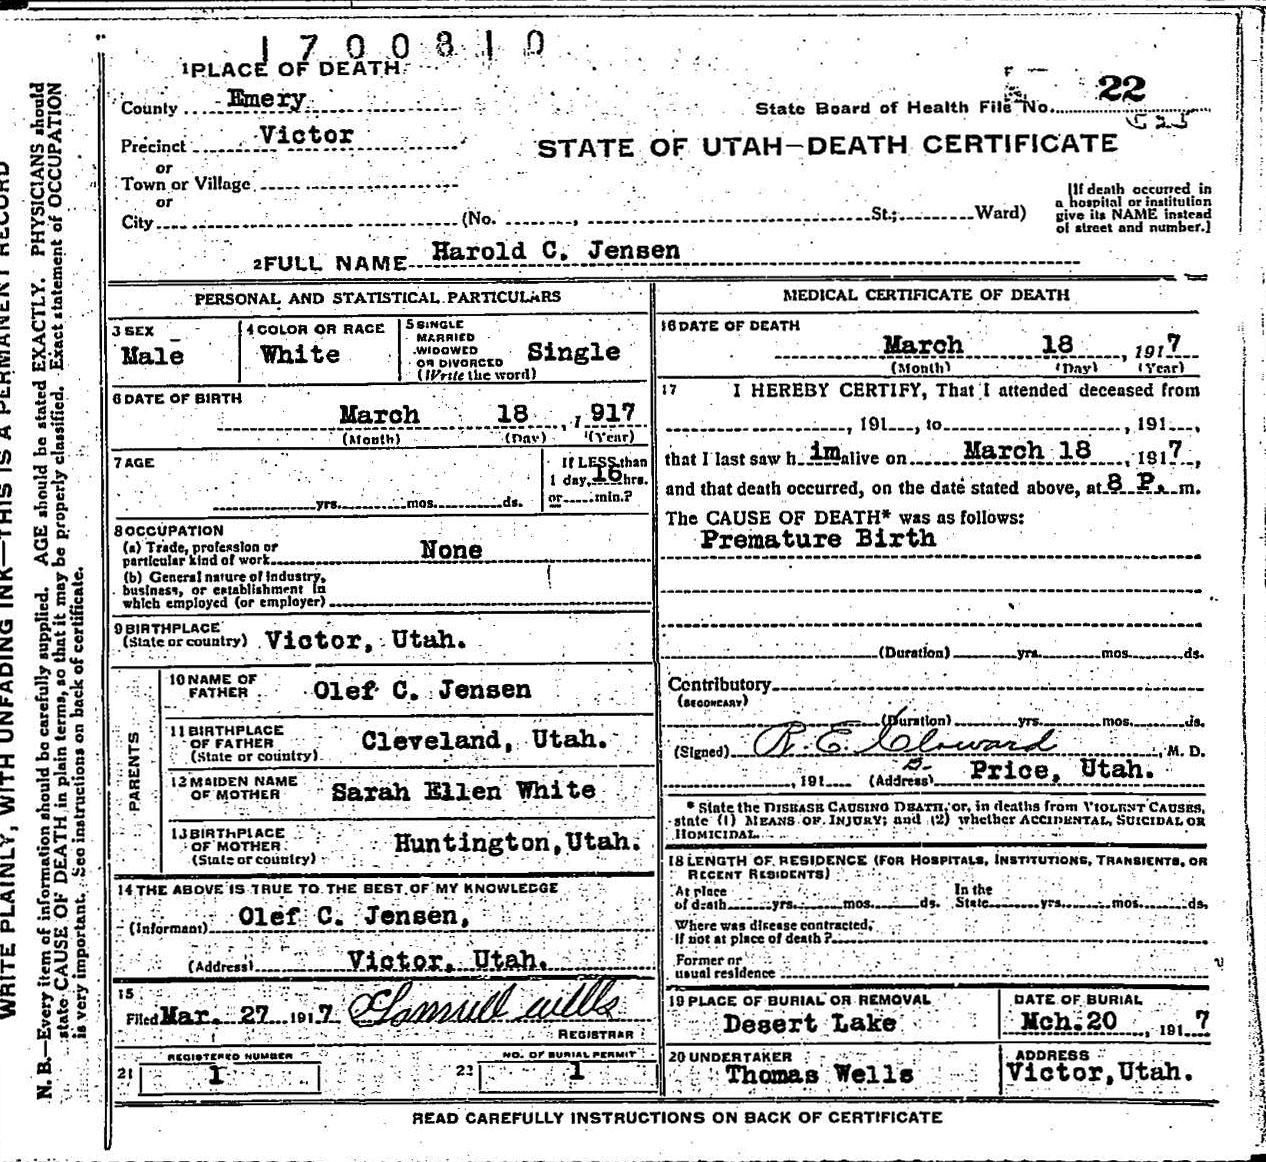 1700810
1 PLACE OF DEATH
County Emery
State Board of Health File No. 22
525
Precinct Victor
STATE OF UTAH—DEATH CERTIFICATE
or
Town or Village
or
City (No. , St.; Ward)
[If death occurred in
a hospital or institution
give its NAME instead
of street and number.]
2 FULL NAME Harold C. Jensen
PERSONAL AND STATISTICAL PARTICULARS
3 SEX
Male
4 COLOR OR RACE
White
5 SINGLE
MARRIED
WIDOWED
OR DIVORCED
(Write the word)
Single
6 DATE OF BIRTH
March 18, 1917
(Month) (Day) (Year)
7 AGE
yrs. mos. ds.
If LESS than
1 day, 16 hrs.
or min.?
8 OCCUPATION
(a) Trade, profession or
particular kind of work None
(b) General nature of industry,
business, or establishment in
which employed (or employer)
9 BIRTHPLACE
(State or country) Victor, Utah.
PARENTS
10 NAME OF
FATHER Olef C. Jensen
11 BIRTHPLACE
OF FATHER
(State or country) Cleveland, Utah.
12 MAIDEN NAME
OF MOTHER Sarah Ellen White
13 BIRTHPLACE
OF MOTHER
(State or country) Huntington, Utah.
14 THE ABOVE IS TRUE TO THE BEST OF MY KNOWLEDGE
(Informant) Olef C. Jensen,
(Address) Victor, Utah.
15
Filed Mar. 27 1917 Samuel Wells
REGISTRAR
REGISTERED NUMBER
21 1
NO. OF BURIAL PERMIT
22 1
MEDICAL CERTIFICATE OF DEATH
16 DATE OF DEATH
March 18, 1917
(Month) (Day) (Year)
17 I HEREBY CERTIFY, That I attended deceased from
, 191 , to , 191 ,
that I last saw h im alive on March 18, 1917,
and that death occurred, on the date stated above, at 8 P. m.
The CAUSE OF DEATH* was as follows:
Premature Birth
(Duration) yrs. mos. ds.
Contributory
(SECONDARY)
(Duration) yrs. mos. ds.
(Signed) R. E. Cloward, M. D.
, 191 (Address) Price, Utah.
* State the DISEASE CAUSING DEATH, or, in deaths from VIOLENT CAUSES,
state (1) MEANS OF INJURY; and (2) whether ACCIDENTAL, SUICIDAL OR
HOMICIDAL.
18 LENGTH OF RESIDENCE (FOR HOSPITALS, INSTITUTIONS, TRANSIENTS, OR
RECENT RESIDENTS)
At place In the
of death yrs. mos. ds. State yrs. mos. ds.
Where was disease contracted,
If not at place of death?
Former or
usual residence
19 PLACE OF BURIAL OR REMOVAL
Desert Lake
DATE OF BURIAL
Mch. 20, 1917
20 UNDERTAKER
Thomas Wells
ADDRESS
Victor, Utah.
READ CAREFULLY INSTRUCTIONS ON BACK OF CERTIFICATE
WRITE PLAINLY, WITH UNFADING INK—THIS IS A PERMANENT RECORD
N. B.—Every item of information should be carefully supplied. AGE should be stated EXACTLY. PHYSICIANS should
state CAUSE OF DEATH in plain terms, so that it may be properly classified. Exact statement of OCCUPATION
is very important. See instructions on back of certificate.